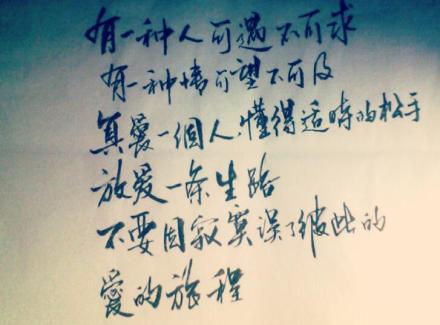 有一种人可遇不可求
有一种情可望不可及
真爱一個人懂得适時的松手
放爱一条生路
不要因寂寞误了彼此的
愛的旅程